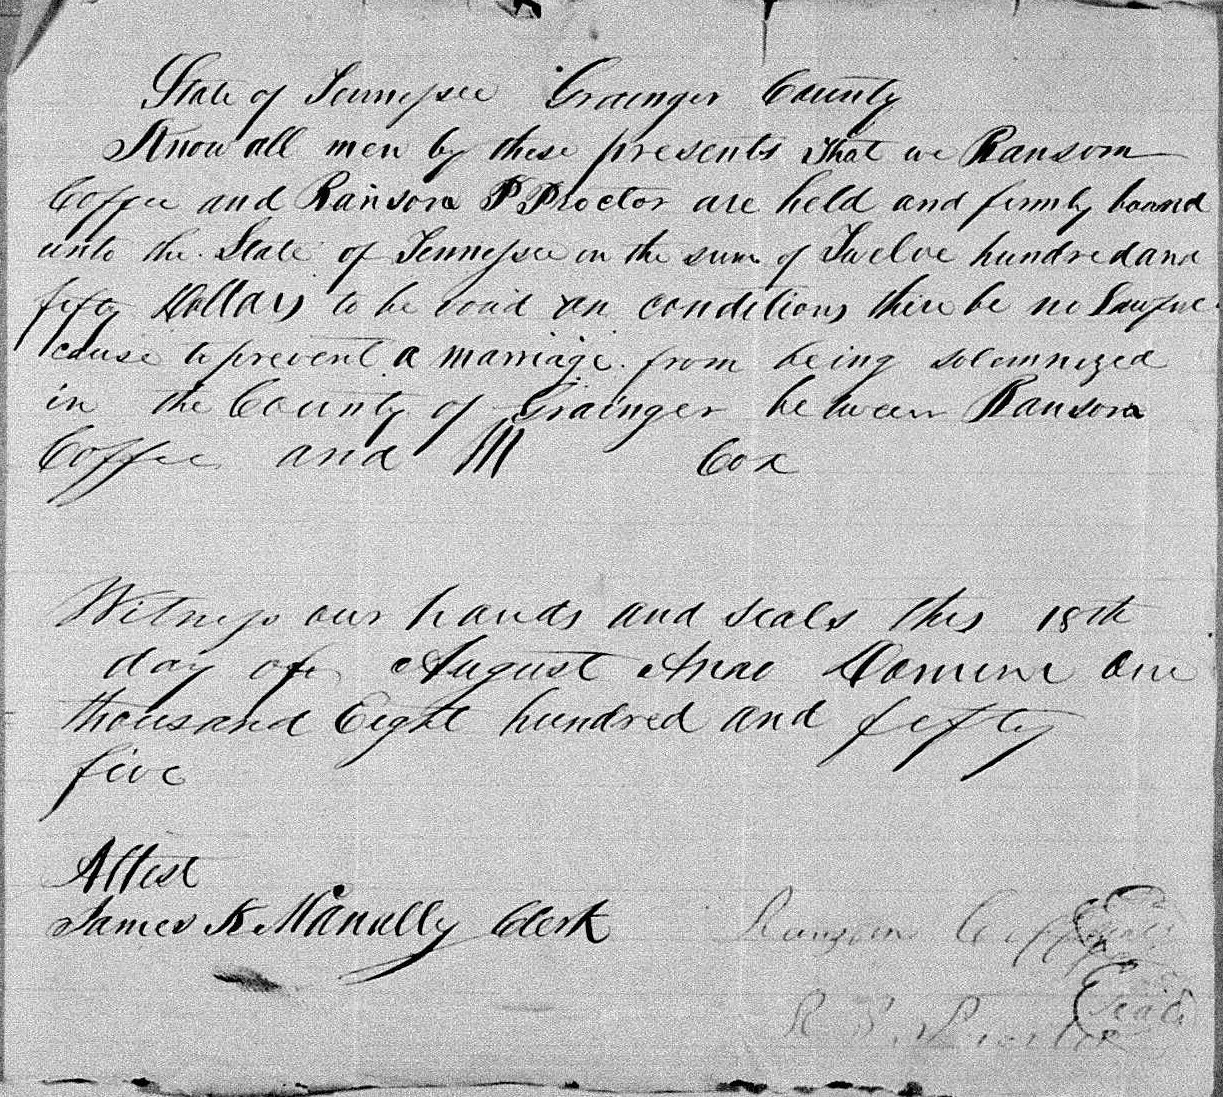 State of Tennessee Grainger County
Know all men by these presents that we Ransom
Coffee and Ransom P Proctor are held and firmly bound
unto the State of Tennessee in the sum of Twelve hundred and
fifty Dollars to be void on conditions there be no Lawful
cause to prevent a marriage from being solemnized
in the County of Grainger between Ransom
Coffee and M Cox
Witness our hands and seals this 18th
day of August Anno Domini One
thousand Eight hundred and fifty
five
Attest
James K McAnally Clerk
Ransom Coffee Seal
R P Proctor Seal